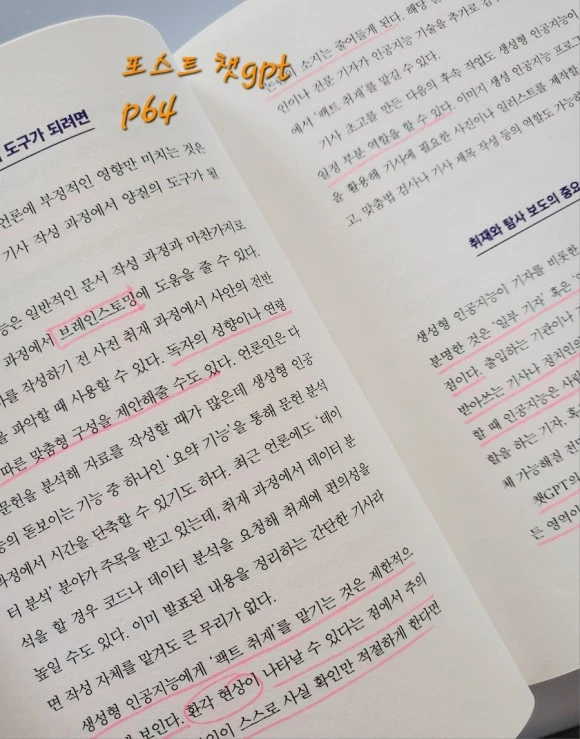 포스트 챗gpt
p64
도구가 되려면
언론에 부정적인 영향만 미치는 것은
기사 작성 과정에서 양질의 도구가 될
능은 일반적인 문서 작성 과정과 마찬가지로
과정에서 브레인스토밍에 도움을 줄 수 있다.
를 작성하기 전 사전 취재 과정에서 사안의 전반
을 파악할 때 사용할 수 있다. 독자의 성향이나 연령
따른 맞춤형 구성을 제안해줄 수도 있다. 언론인은 다
문헌을 분석해 자료를 작성할 때가 많은데 생성형 인공
능의 돋보이는 기능 중 하나인 '요약 기능'을 통해 문헌 분석
과정에서 시간을 단축할 수 있기도 하다. 최근 언론에도 '데이
터 분석' 분야가 주목을 받고 있는데, 취재 과정에서 데이터 분
석을 할 경우 코드나 데이터 분석을 요청해 취재에 편의성을
높일 수도 있다. 이미 발표된 내용을 정리하는 간단한 기사라
면 작성 자체를 맡겨도 큰 무리가 없다.
생성형 인공지능에게 '팩트 취재'를 맡기는 것은 제한적으
보인다. 환각 현상이 나타날 수 있다는 점에서 주의
스스로 사실 확인만 적절하게 한다면
소지는 줄어들게 된다. 해당
인이나 전문 기자가 인공지능 기술을 추가로
에서 '팩트 취재'를 맡길 수 있다.
기사 초고를 만든 다음의 후속 작업도 생성형 인공지능
일정 부분 역할을 할 수 있다. 이미지 생성 인공지능 프로그
을 활용해 기사에 필요한 사진이나 일러스트를 제작할
고, 맞춤법 검사나 기사 제목 작성 등의 역할도 가능하
취재와 탐사 보도의 중요
생성형 인공지능이 기자를 비롯한
분명한 것은 '일부 기자' 혹은
점이다. 출입하는 기관이나
받아쓰는 기사나 정치인의
할 때 인공지능은 사람
한을 하는 기자, 혹
체 가능해질
챗GPT의
든 영역이